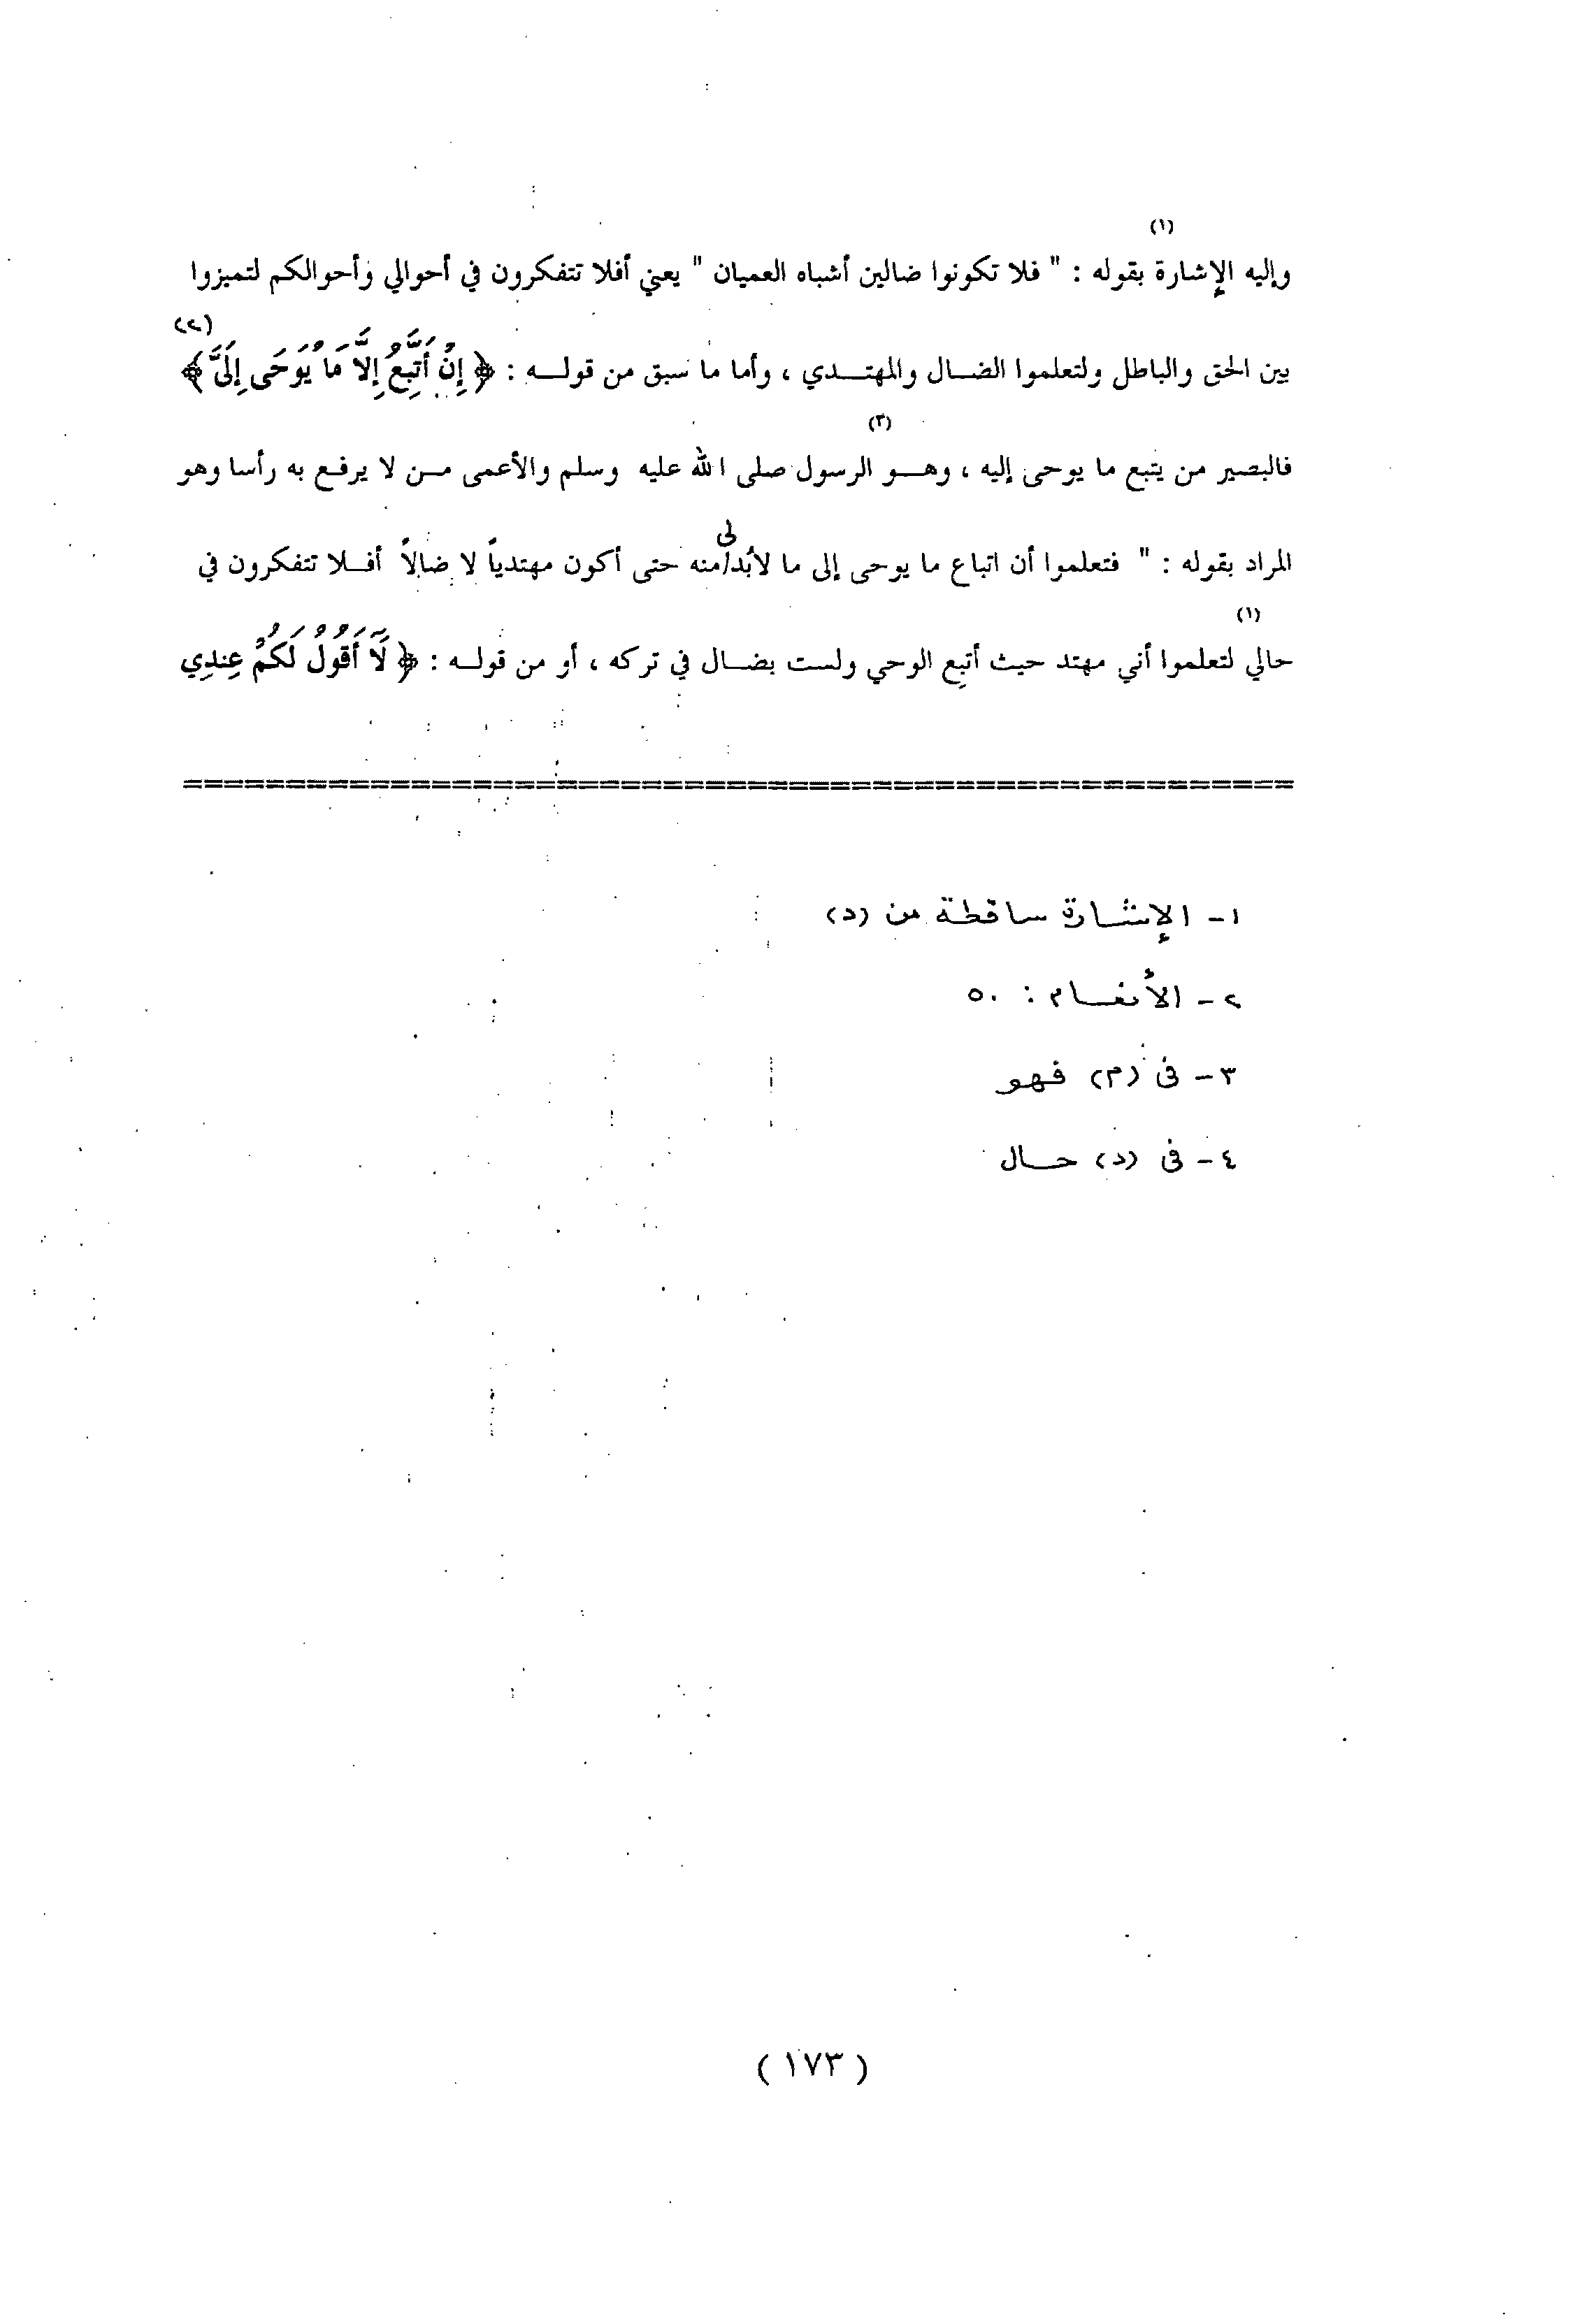 (١)
وإليه الإشارة بقوله : " فلا تكونوا ضالين أشباه العميان " يعني أفلا تتفكرون في أحوالي وأحوالكم لتميزوا
(٢)
بين الحق والباطل ولتعلموا الضـال والمهتـدي ، وأما ما سبق من قولـه : ﴿ إِنْ أَتَّبِعُ إِلَّا مَا يُوحَى إِلَيَّ ﴾
(٣)
فالبصير من يتبع ما يوحى إليه ، وهـو الرسول صلى الله عليه وسلم والأعمى مـن لا يرفـع به رأسا وهو
لى
المراد بقوله : " فتعلموا أن اتباع ما يوحى إلى ما لابُد/منه حتى أكون مهتدياً لا ضالاً أفـلا تتفكرون في
(١)
حالي لتعلموا أني مهتد حيث أتبع الوحي ولست بضـال في تركه ، أو من قولـه : ﴿ لَّا أَقُولُ لَكُمْ عِندِي
================================================
١- الإشـارة ساقطة من (د)
٢- الأنعـام : ٥٠
٣- فى (م) فهو
٤- فى (د) حـال
( ١٧٣ )